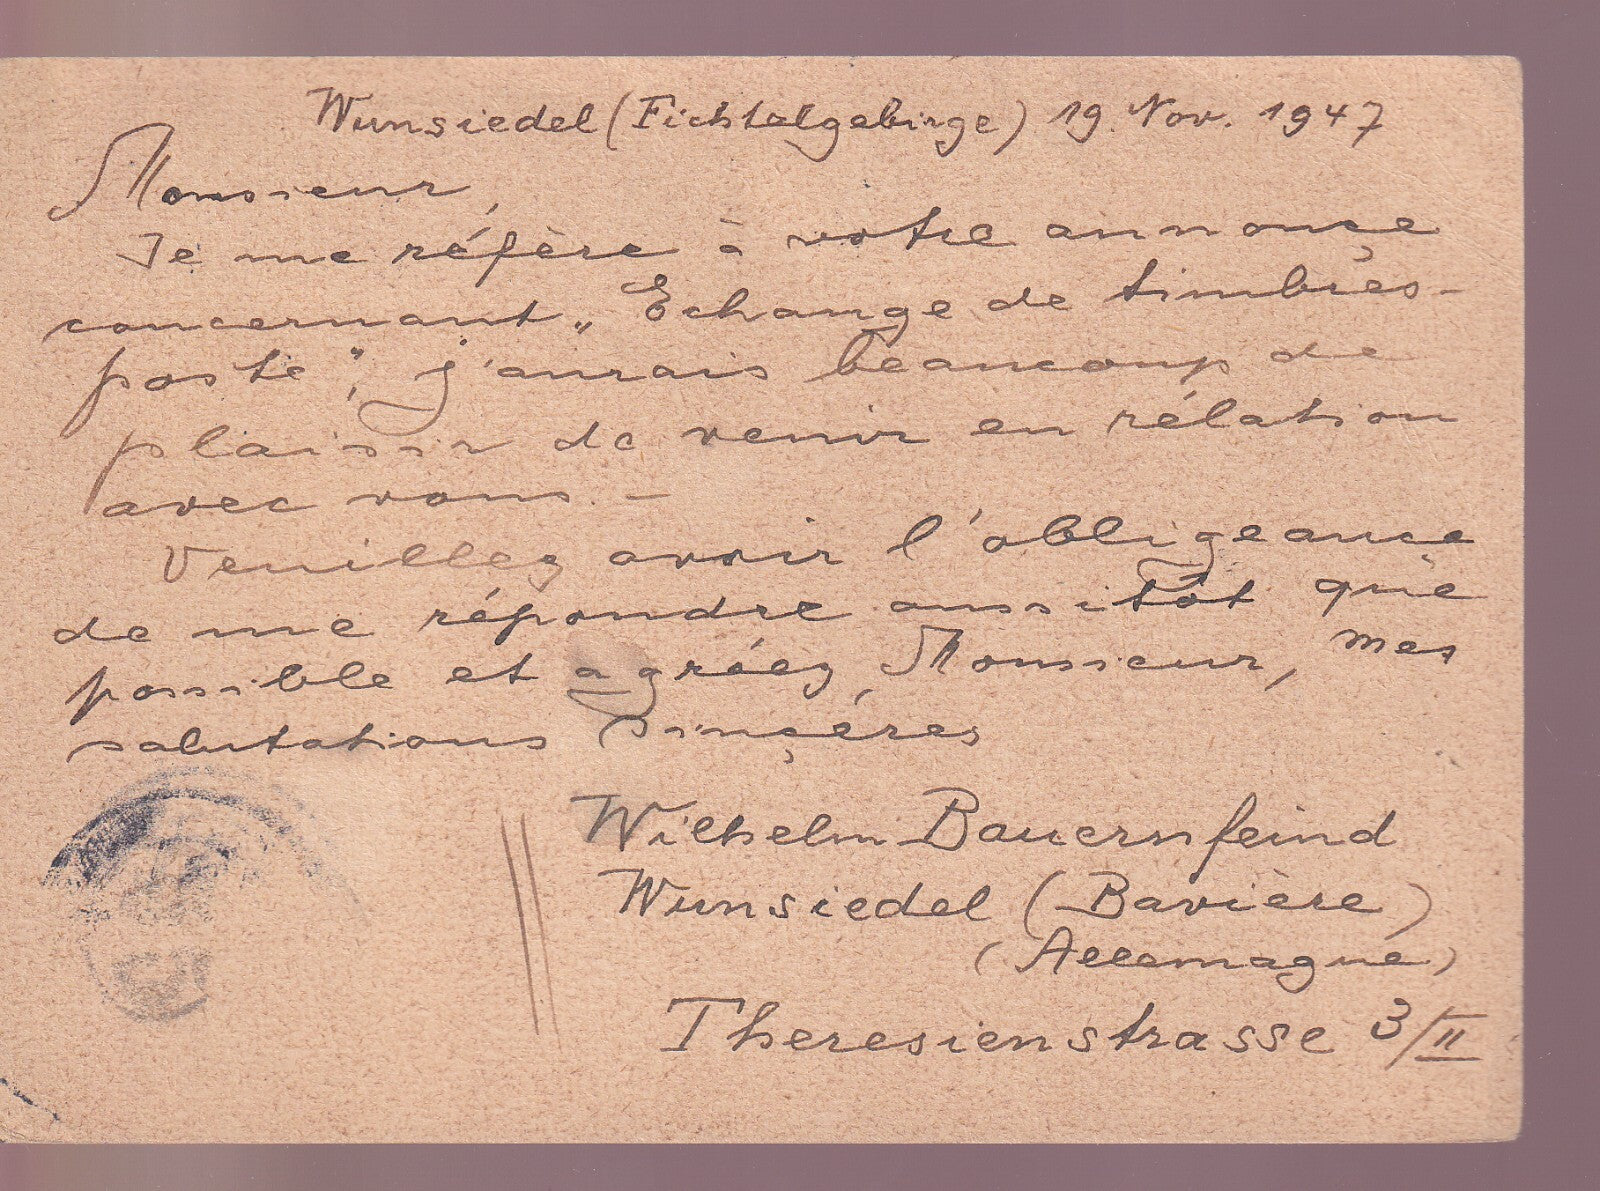 Wunsiedel (Fichtelgebirge) 19. Nov. 1947
Monsieur,
Je me réfère à votre annonçe
concernant „Echange de timbres-
poste", j'aurais beaucoup de
plaisir de venir en rélation
avec vous. –
Veuillez avoir l'obligeance
de me répondre aussitôt que
possible et agréez, Monsieur, mes
salutations sinçéres
Wilhelm Bauernfeind
Wunsiedel (Bavière)
(Allemagne)
Theresienstrasse 3/II